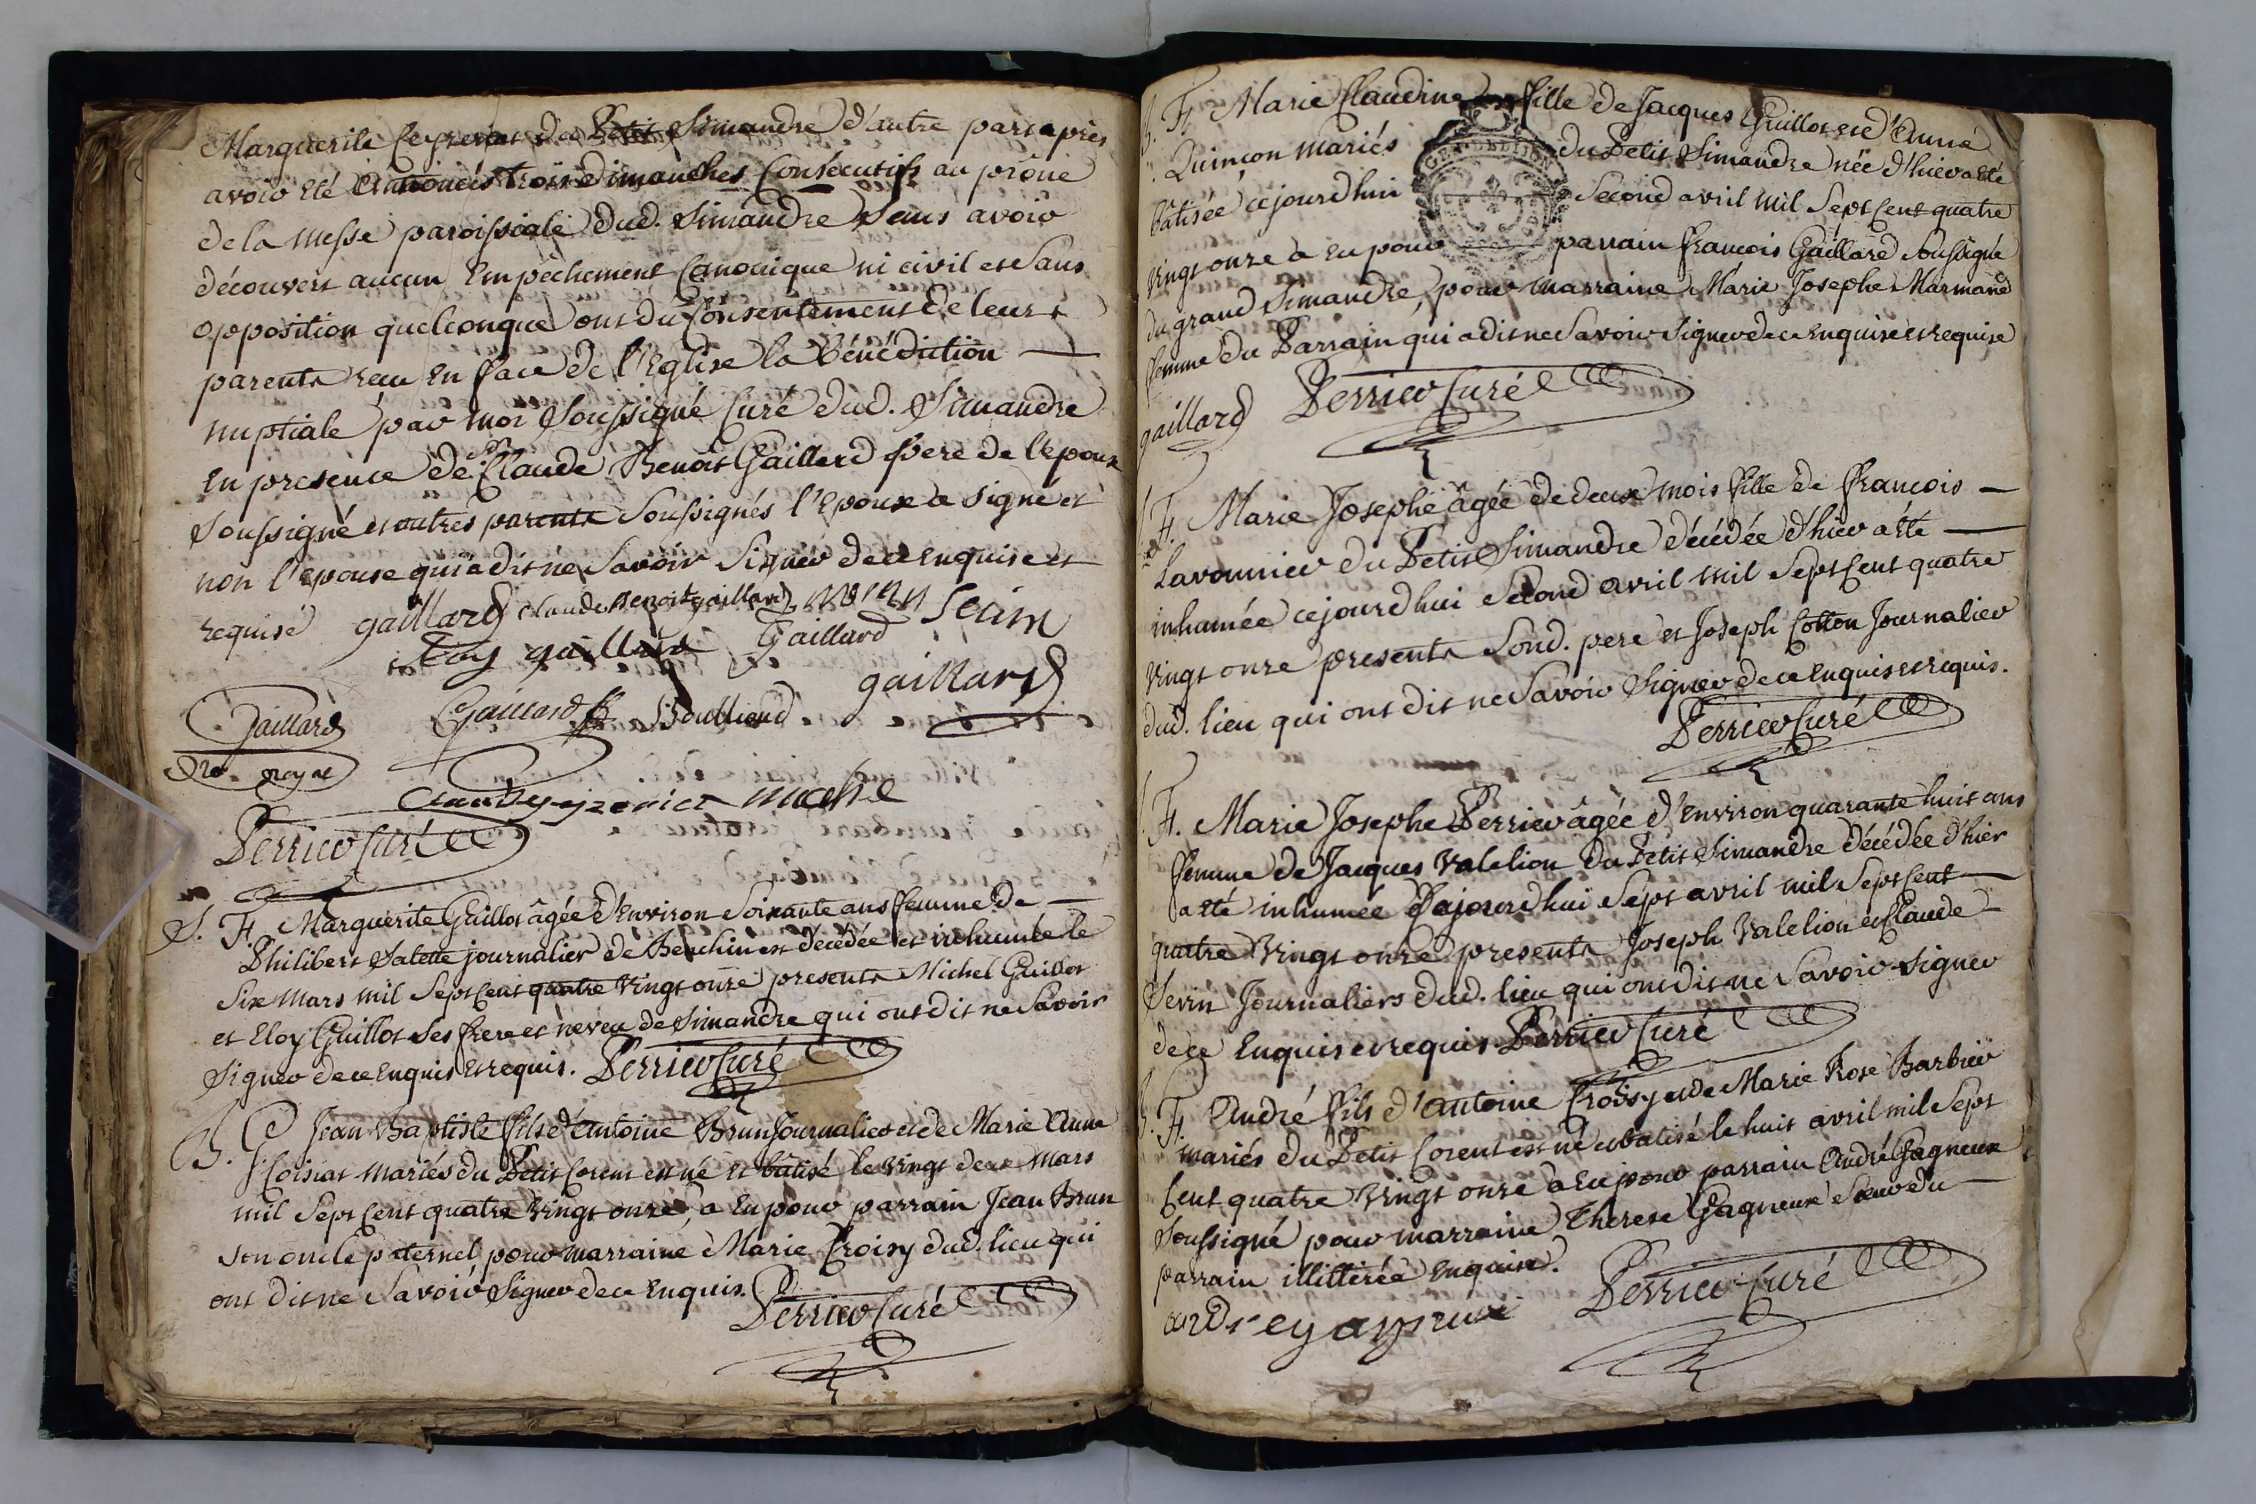 Marguerite du Petit Simandre d'autre part après
avoir été Annoncés trois dimanches Consécutifs au prône
de la messe paroissiale dud. Simandre Sans avoir
découvert aucun Empêchement Canonique ni civil et Sans
opposition quelconque ont du Consentement de leurs
parents reçu En face de l'Eglise la bénédiction
nuptiale par moi Soussigné Curé dud. Simandre
En presence de Sr. Claude Benoit Gaillard frere de l'epoux
Soussigné et autres parents Soussignés l'Epoux a signé et
non l'epouse qui a dit ne Savoir Signer de ce Enquise et
requise gaillard claude benoit gaillard
gaillard Gaillard
Gaillard Gaillard gaillard
Perrier Curé
S. F. Marguerite Guillot âgée d'Environ Soixante ans femme de
Philibert Salette journalier de est décédée et inhumée le
Six Mars mil Sept Cent quatre Vingt onze presents Michel Guillot
et Eloy Guillot Ses frere et neveu de Simandre qui ont dit ne Savoir
Signer de ce Enquis et requis. Perrier Curé
B. G Jean Baptiste fils d'Antoine Brun Journalier et de Marie Anne
Coisiat mariés du Petit Corent est né et bâtisé le vingt deux Mars
mil Sept Cent quatre Vingt onze, a Eu pour parrain Jean Brun
Son oncle paternel, pour marraine Marie Croisy dud. lieu qui
ont dit ne Savoir Signer de ce Enquis.
Perrier Curé
B. F. Marie Claudine fille de Jacques Guillot et d'Anne
Quinson mariés du Petit Simandre née d'hier a été
bâtisée cejourdhui Second avril mil Sept Cent quatre
Vingt onze a Eu pour parrain françois Gaillard Soussigné
du grand Simandre, pour marraine Marie Josephe Marmand
femme du Parrain qui a dit ne Savoir Signer de ce Enquise et requise
gaillard Perrier Curé
F. Marie Josephe âgée de deux mois fille de françois
Lavonnier du Petit Simandre décédée d'hier a été
inhumée cejourdhui Second avril mil Sept Cent quatre
Vingt onze presents Sond. pere et Joseph Cotton Journalier
dud. lieu qui ont dit ne Savoir Signer de ce Enquis et requis.
Perrier Curé
F. Marie Josephe Perrier âgée d'Environ quarante huit ans
femme de Jacques Valelion du Petit Simandre décédée d'hier
a été inhumée cejourdhui Sept avril mil Sept Cent
quatre Vingt onze presents Joseph Valelion et Claude
Sevin Journaliers dud. lieu qui ont dit ne Savoir Signer
de ce Enquis et requis Perrier Curé
B. F. André fils d'antoine Croisy et de Marie Rose Barbier
mariés du Petit Corent est né et batisé le huit avril mil Sept
Cent quatre Vingt onze a Eu pour parrain André Gagneux
Soussigné pour marraine Therese Gagneux Soeur du
parrain illittérée Enquise.
Perrier Curé